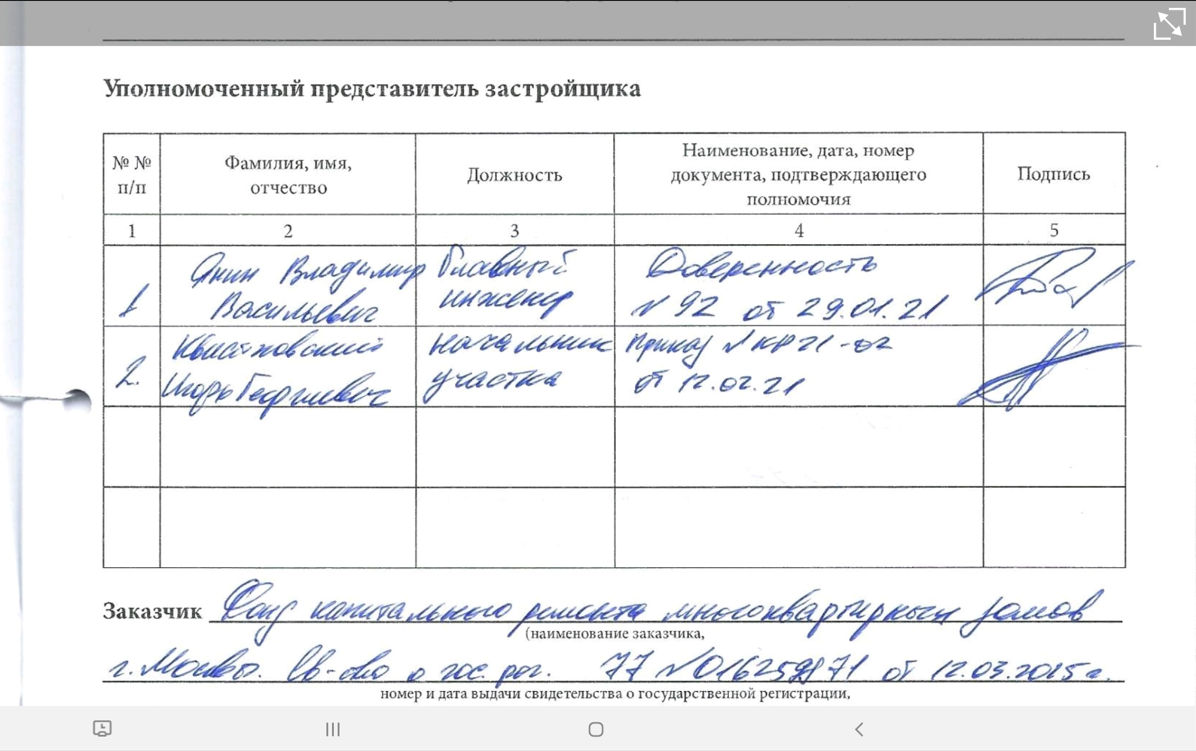 Уполномоченный представитель застройщика
№ №
п/п
Фамилия, имя,
отчество
Должность
Наименование, дата, номер
документа, подтверждающего
полномочия
Подпись
1
2
3
4
5
1
Янин Владимир
Васильевич
Главный
инженер
Доверенность
№ 92 от 29.01.21
2.
Игорь Георгиевич
начальник
участка
Приказ № КР21-02
от 12.02.21
Заказчик Фонд капитального ремонта многоквартирных домов
(наименование заказчика,
г. Москвы. Св-во о гос. рег. 77 от 12.03.2015 г.
номер и дата выдачи свидетельства о государственной регистрации,